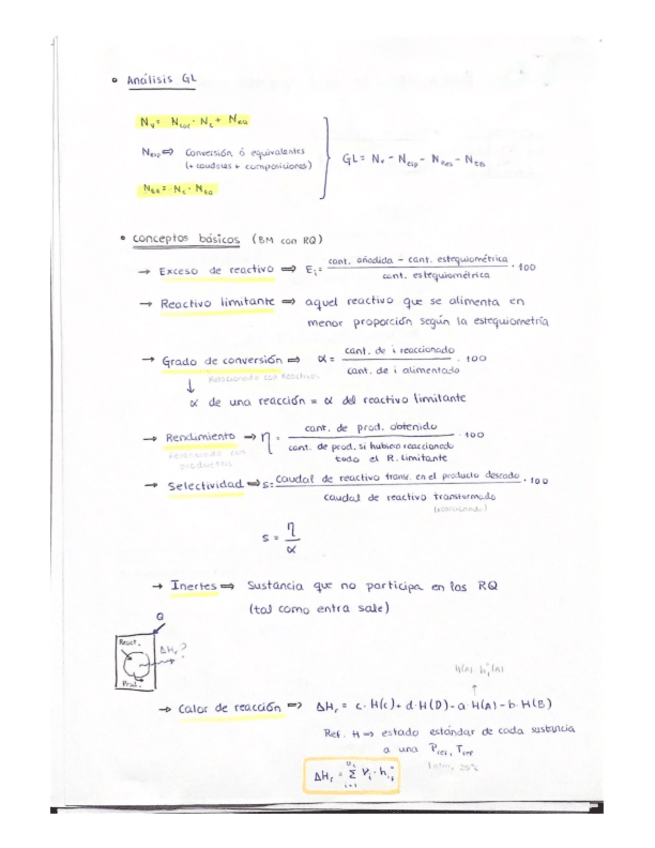 • Análisis GL
Nv = Ncor · Nc + Nea
Neip ⇒ Conversión ó equivalentes
(+ caudales + composiciones)
GL = Nv - Neip - Nres - NEB
= Nc · Nea
• Conceptos básicos (BM con RQ)
→ Exceso de reactivo ⇒ Ei = cant. añadida - cant. estequiométrica / cant. estequiométrica · 100
→ Reactivo limitante ⇒ aquel reactivo que se alimenta en
menor proporción según la estequiometría
→ Grado de conversión ⇒ α = cant. de i reaccionado / cant. de i alimentado · 100
Relacionado con Reactivos
↓
α de una reacción = α del reactivo limitante
→ Rendimiento → η = cant. de prod. obtenido / cant. de prod. si hubiera reaccionado todo el R. limitante · 100
Relacionado con
productos
→ Selectividad ⇒ s: caudal de reactivo transf. en el producto deseado / caudal de reactivo transformado · 100
(reaccionado)
s = η / α
→ Inertes ⇒ Sustancia que no participa en las RQ
(tal como entra sale)
Q
React.
ΔHr?
Prod.
H(A) h°i(A)
↑
→ Calor de reacción ⇒ ΔHr = c · H(c) + d · H(D) - a · H(A) - b · H(B)
Ref. H ⇒ estado estándar de cada sustancia
a una Pref, Tref
1 atm, 25°C
ΔHr = Σ νi · h°
i=1